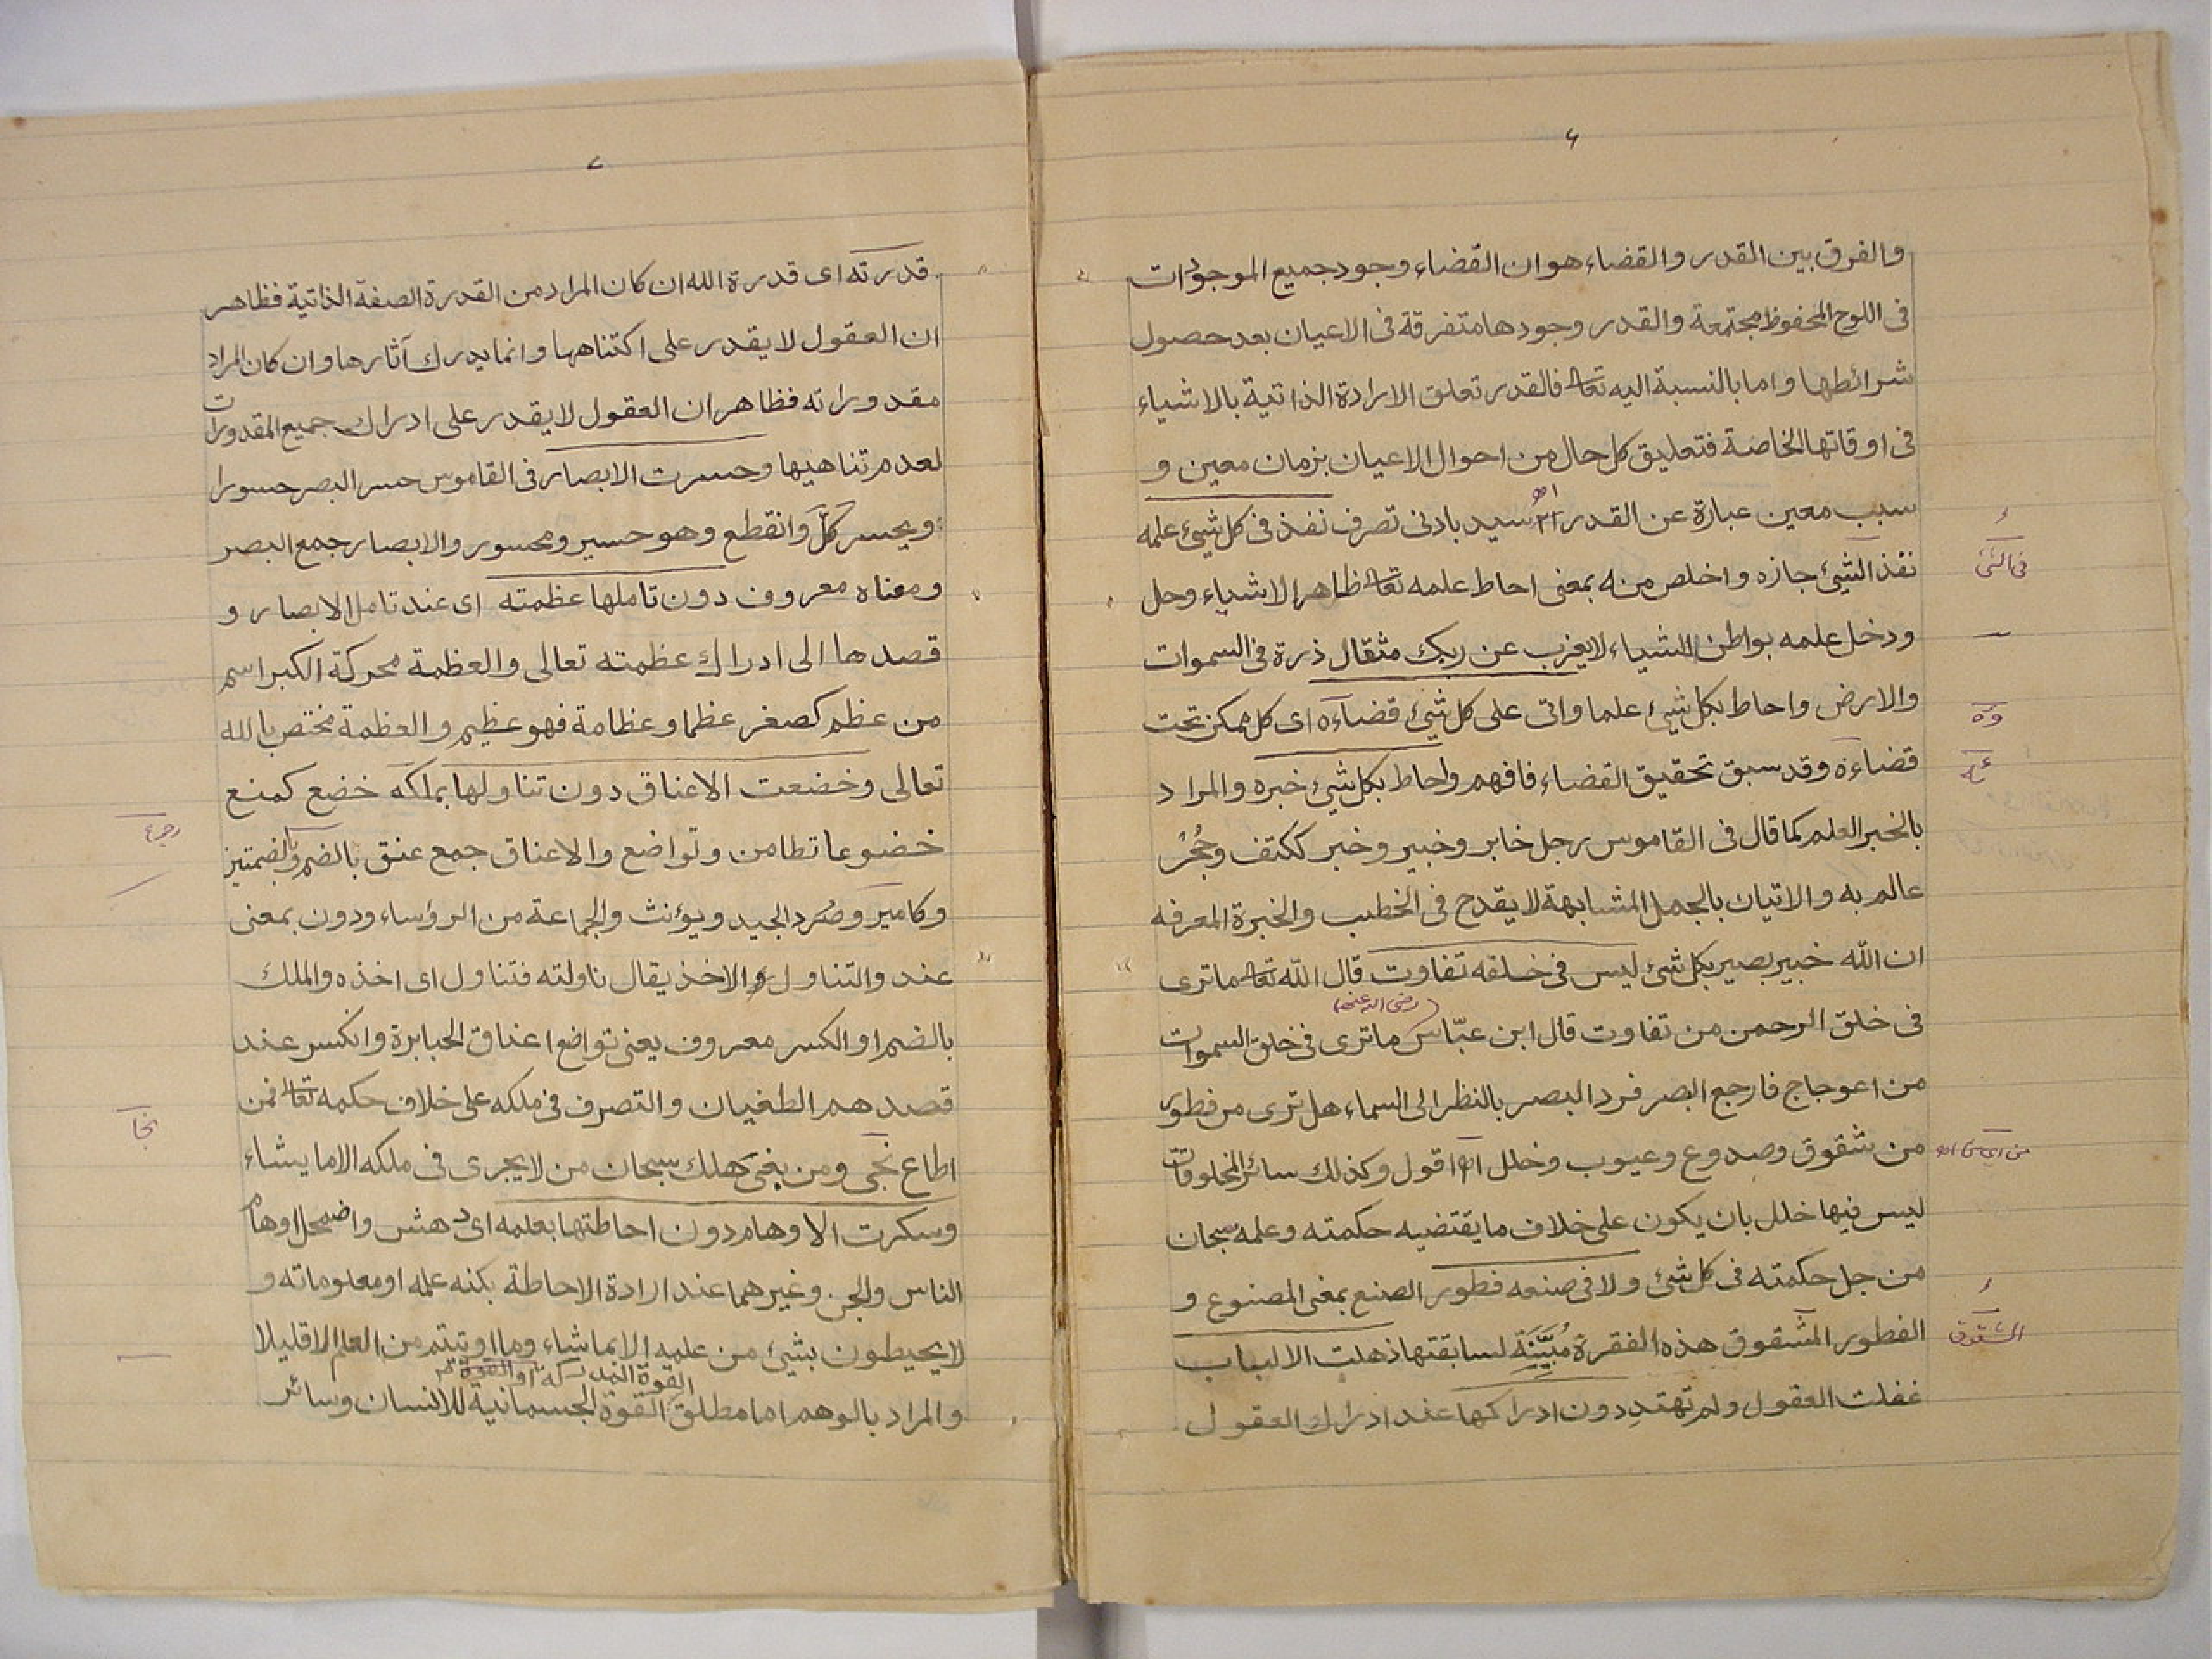 ٦
والفرق بين القدر والقضاء هو ان القضاء وجود جميع الموجودات
فى اللوح المحفوظ مجتمعة والقدر وجودها متفرقة فى الاعيان بعد حصول
شرائطها واما بالنسبة اليه تعا فالقدر تعلق الارادة الذاتية بالاشياء
فى اوقاتها الخاصة فتعليق كل حال من احوال الاعيان بزمان معين و
سبب معين عبارة عن القدر اه سيد بادنى تصرف نفذ فى كل شيئ علمه
نفذ الشيئ جازه واخلص منه بمعنى احاط علمه تعا ظاهر الاشياء وحل
فى الشئ
ودخل علمه بواطن الشياء لا يغرب عن ربك مثقال ذرة فى السموات
والارض واحاط بكل شيئ علما واتى على كل شيئ قضاءه اى كل ممكن تحت
وه
قضاءه وقد سبق تحقيق القضاء فافهم واحاط بكل شيئ خبره والمراد
بالخبر العلم كما قال فى القاموس رجل خابر وخبير وخبر ككتف وجُحْر
عالم به والاتيان بالجمل المشابهة لا يقدح فى الخطب والخبرة المعرفه
ان الله خبير بصير بكل شئ ليس فى خلقه تفاوت قال الله تعا ما ترى
فى خلق الرحمن من تفاوت قال ابن عبّاس (رضى الله عنهما) ما ترى فى خلق السموات
من اعوجاج فارجع البصر فرد البصر بالنظر الى السماء هل ترى من فطور
من شقوق وصدوع وعيوب وخلل اه اقول وكذلك سائر المخلوقات
ليس فيها خلل بان يكون على خلاف ما يقتضيه حكمته وعلمه سبحان
من جل حكمته فى كل شئ ولا فى صنعه فطور الصنع بمعنى المصنوع و
الفطور المشقوق هذه الفقرة مُبَيِّنَة لسابقتها ذهلت الالباب
الشقوق
غفلت العقول ولم تهتدِ دون ادراكها عند ادراك العقول
٧
قدرته اى قدرة الله ان كان المراد من القدرة الصفة الذاتية فظاهر
ان العقول لا يقدر على اكتناهها وانما يدرك آثارها وان كان المراد
مقدوراته فظاهر ان العقول لا يقدر على ادراك جميع المقدورات
لعدم تناهيها وحسرت الابصار فى القاموس حسر البصر حسورا
ويحسر كلّ وانقطع وهو حسير ومحسور والابصار جمع البصر
ومعناه معروف دون تاملها عظمته اى عند تامل الابصار و
قصدها الى ادراك عظمته تعالى والعظمة محركة الكبر اسم
من عظم كصغر عظما وعظامة فهو عظيم والعظمة مختص بالله
تعالى وخضعت الاعناق دون تناولها بملكه خضع كمنع
خضوعا تطامن وتواضع والاعناق جمع عنق بالضم وبالضمتين
وكامير وصُرد الجيد ويؤنث والجماعة من الرؤساء ودون بمعنى
عند والتناول والاخذ يقال ناولته فتناول اى اخذه والملك
بالضم او الكسر معروف يعنى تواضع اعناق الجبابرة وانكسر عند
قصدهم الطغيان والتصرف فى ملكه على خلاف حكمه تعا فمن
اطاع نجى ومن بغى هلك سبحان من لا يجرى فى ملكه الا ما يشاء
نجا
وسكرت الاوهام دون احاطتها بعلمه اى دهش واضمحل اوهام
الناس والجن وغيرهما عند ارادة الاحاطة بكنه علمه او معلوماته و
لا يحيطون بشئ من علمه الا بما شاء وما اوتيتم من العلم الا قليلا
والمراد بالوهم اما مطلق القوة الجسمانية للانسان وسائر